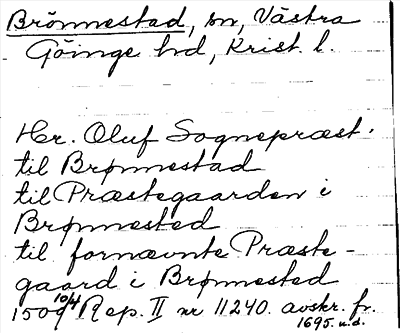 Brönnestad, sn, Västra
Göinge hd, Krist. l.
Hr. Oluf Sognepræst
til Brønnestad
til Præstegaarden i
Brønnested
til fornævnte Præste-
gaard i Brønnested
1509 10/4 Rep. II nr 11240. avskr. fr.
1695. u.d.